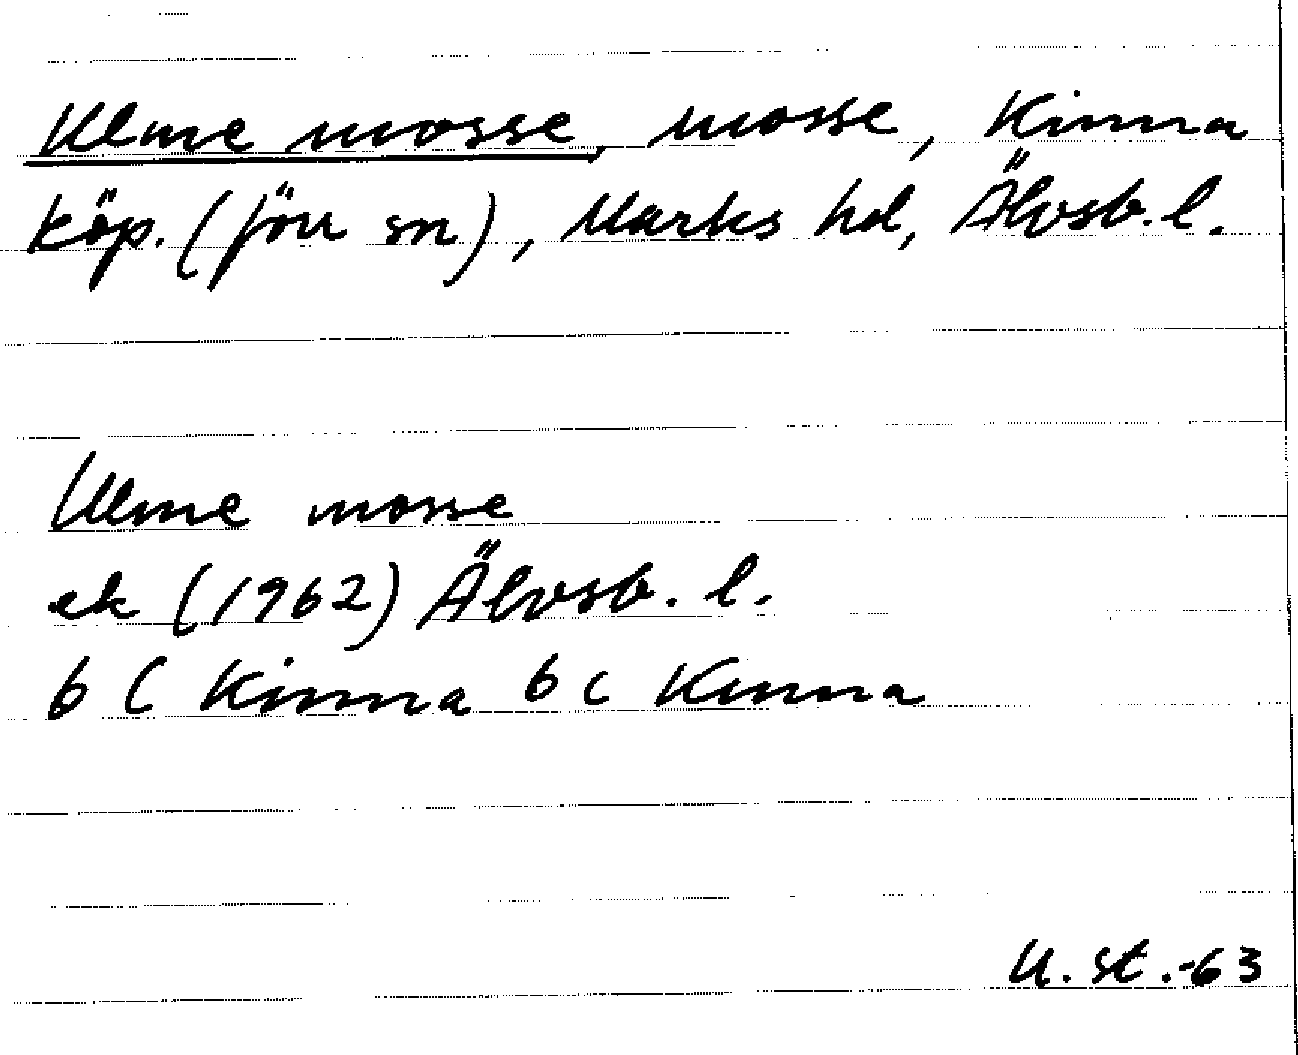 Ulme mosse, mosse, Kinna
köp. (förr sn), Marks hd, Älvsb. l.
Ulme mosse
ek (1962) Älvsb. l.
6 C Kinna 6 c Kinna
U. St. -63